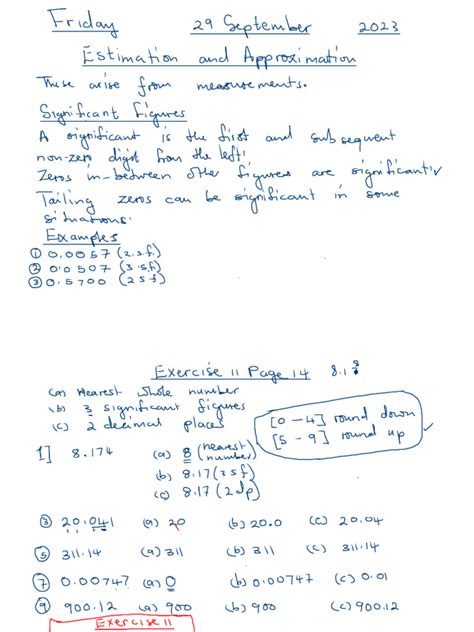 Friday 29 September 2023
Estimation and Approximation
These arise from measurements.
Significant Figures
A significant is the first and subsequent
non-zero digit from the left.
Zeros in-between other figures are significant.
Tailing zeros can be significant in some
situations.
Examples
① 0.0057 (2.s.f)
② 0.0507 (3.s.f)
③ 0.5700 (2sf)
Exercise 11 Page 14 8.1
(a) Nearest whole number
(b) 3 significant figures
(c) 2 decimal places
[0-4] round down
[5-9] round up
1] 8.174 (a) 8 (nearest number)
(b) 8.17 (3sf)
(c) 8.17 (2dp)
③ 20.041 (a) 20 (b) 20.0 (c) 20.04
⑤ 311.14 (a) 311 (b) 311 (c) 311.14
⑦ 0.00747 (a) 0 (b) 0.00747 (c) 0.01
⑨ 900.12 (a) 900 (b) 900 (c) 900.12
Exercise 11